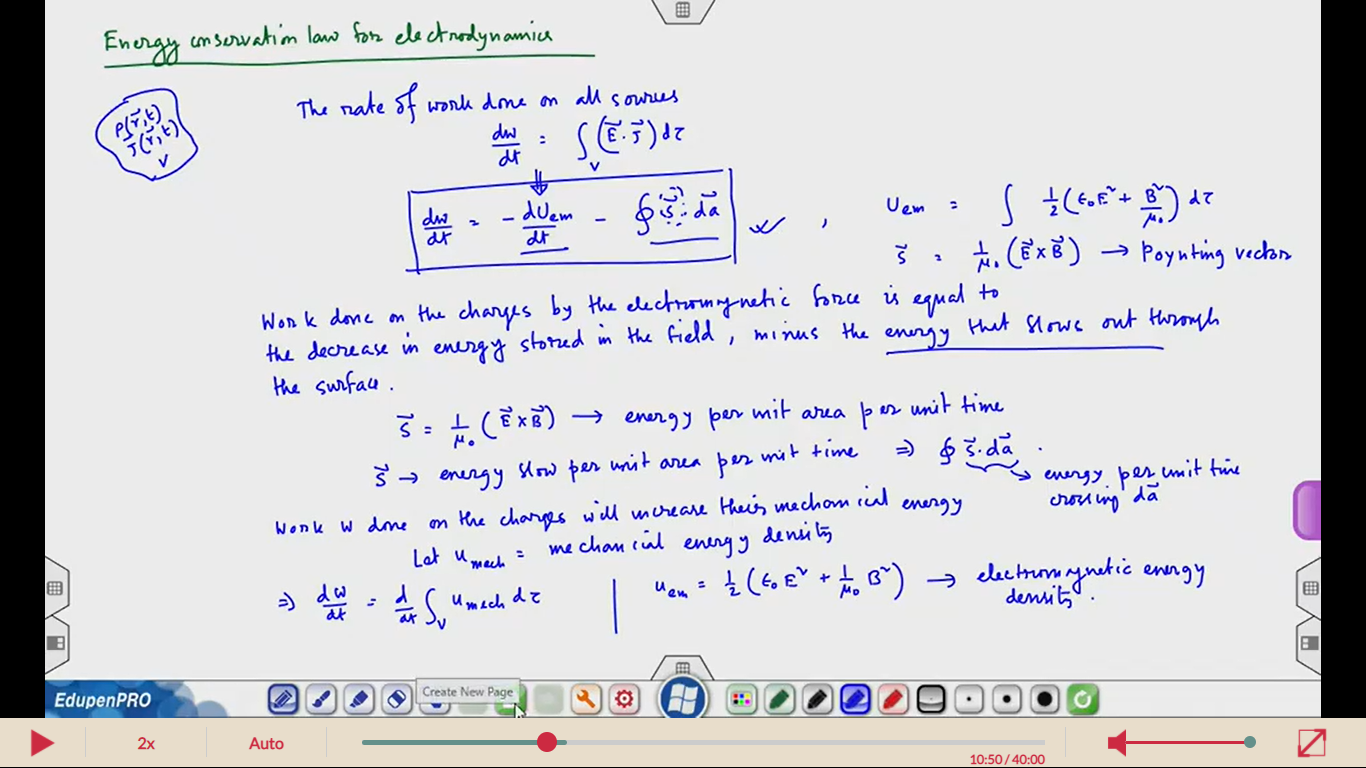 Energy conservation law for electrodynamics
ρ(r⃗,t)
J⃗(r⃗,t)
V
The rate of work done on all sources
dw/dt = ∫_V (E⃗·J⃗) dτ
⇓
dw/dt = - dU_em/dt - ∮ S⃗·da⃗ , U_em = ∫ 1/2 (ε₀E² + B²/μ₀) dτ
S⃗ = 1/μ₀ (E⃗×B⃗) → Poynting vector
Work done on the charges by the electromagnetic force is equal to
the decrease in energy stored in the field, minus the energy that flows out through
the surface.
S⃗ = 1/μ₀ (E⃗×B⃗) → energy per unit area per unit time
S⃗ → energy flow per unit area per unit time ⇒ ∮ S⃗·da⃗ .
→ energy per unit time
crossing da⃗
Work W done on the charges will increase their mechanical energy
Let u_mech = mechanical energy density
⇒ dw/dt = d/dt ∫_V u_mech dτ | u_em = 1/2 (ε₀E² + 1/μ₀ B²) → electromagnetic energy
density.
EdupenPRO
Create New Page
2x
Auto
10:50 / 40:00